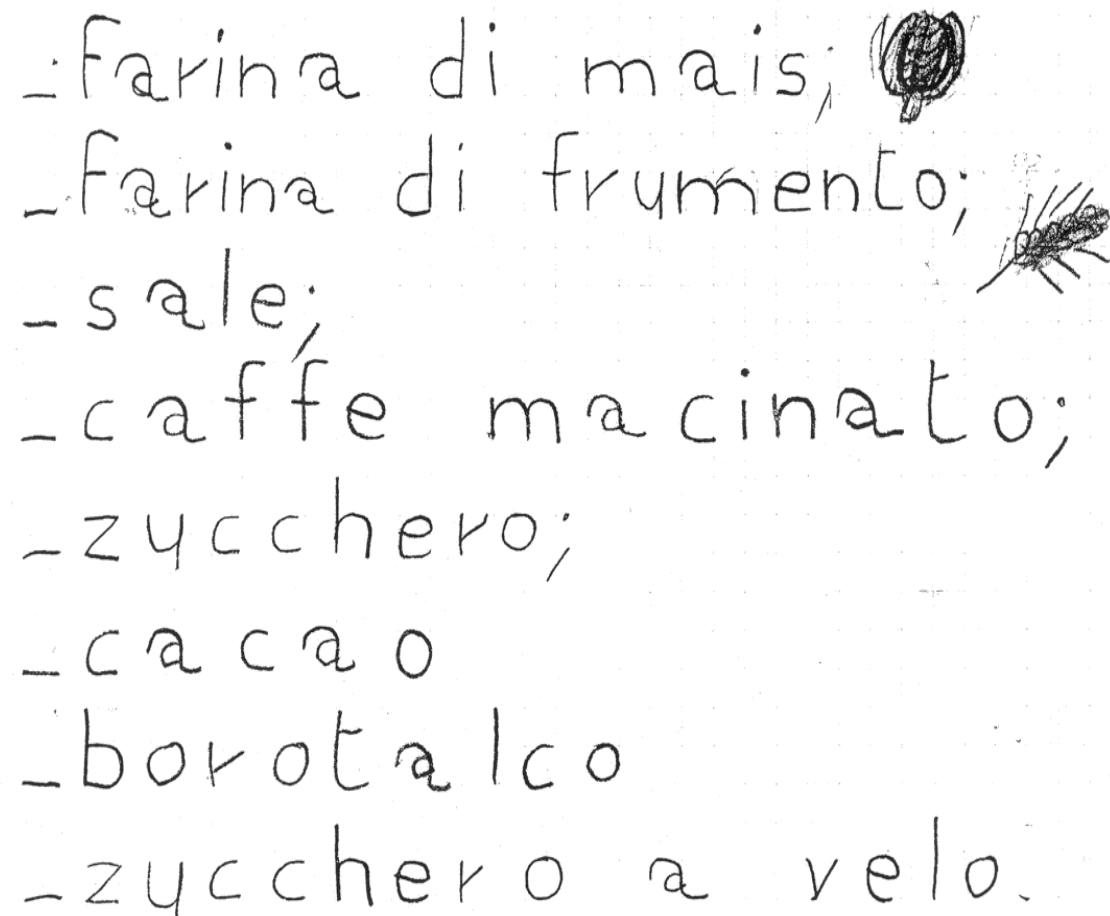 - farina di mais;
- farina di frumento;
- sale;
- caffe macinato;
- zucchero;
- cacao
- borotalco
- zucchero a velo.